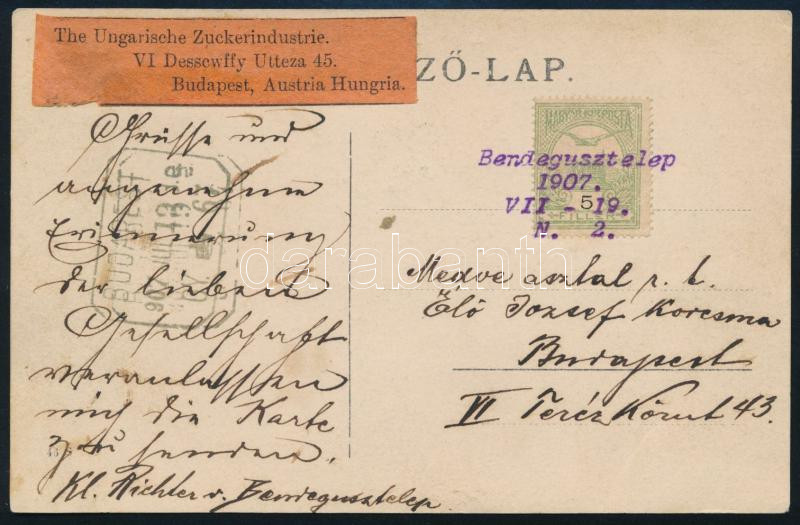 The Ungarische Zuckerindustrie.
VI Dessewffy Utteza 45.
Budapest, Austria Hungria.
ZŐ-LAP.
MAGYAR KIR. POSTA
5
FILLÉR
Bendegusztelep
1907.
VII - 19.
N. 2.
Grüsse und
angenehme
Erinnerung
der lieben
Gesellschaft
veranlassen
mich die Karte
zu senden.
Kl. Richter v. Bendegusztelep
BUDAPEST
907
Medve asztal r. t.
Élő Jozsef Korcsma
Budapest
VI Teréz Körut 43.
darabanth